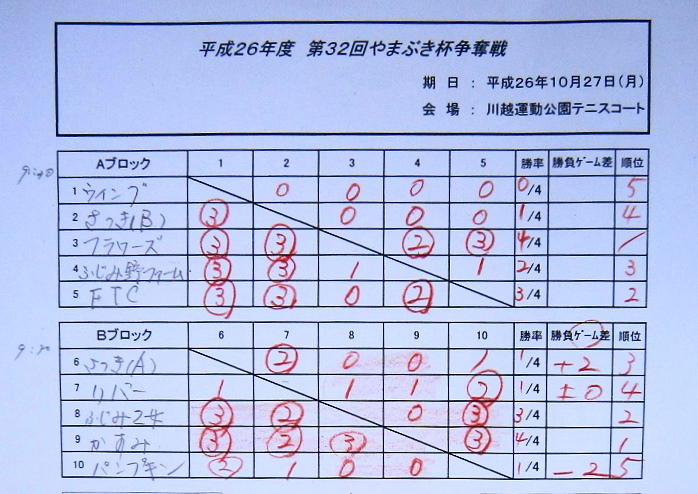 平成26年度 第32回やまぶき杯争奪戦
期 日 : 平成26年10月27日(月)
会 場 : 川越運動公園テニスコート
Aブロック 1 2 3 4 5 勝率 勝負ゲーム差 順位
1 ウイング 0 0 0 0 0/4 5
2 さつき(B) 3 0 0 0 1/4 4
3 フラワーズ 3 3 2 3 4/4 1
4 ふじみ野ファーム 3 3 1 1 2/4 3
5 FTC 3 3 0 2 3/4 2
Bブロック 6 7 8 9 10 勝率 勝負ゲーム差 順位
6 さつき(A) 2 0 0 1 1/4 +2 3
7 リバー 1 1 1 2 1/4 ±0 4
8 ふじみ 3 2 0 3 3/4 2
9 かすみ 3 2 3 3 4/4 1
10 パンプキン 2 1 0 0 1/4 -2 5